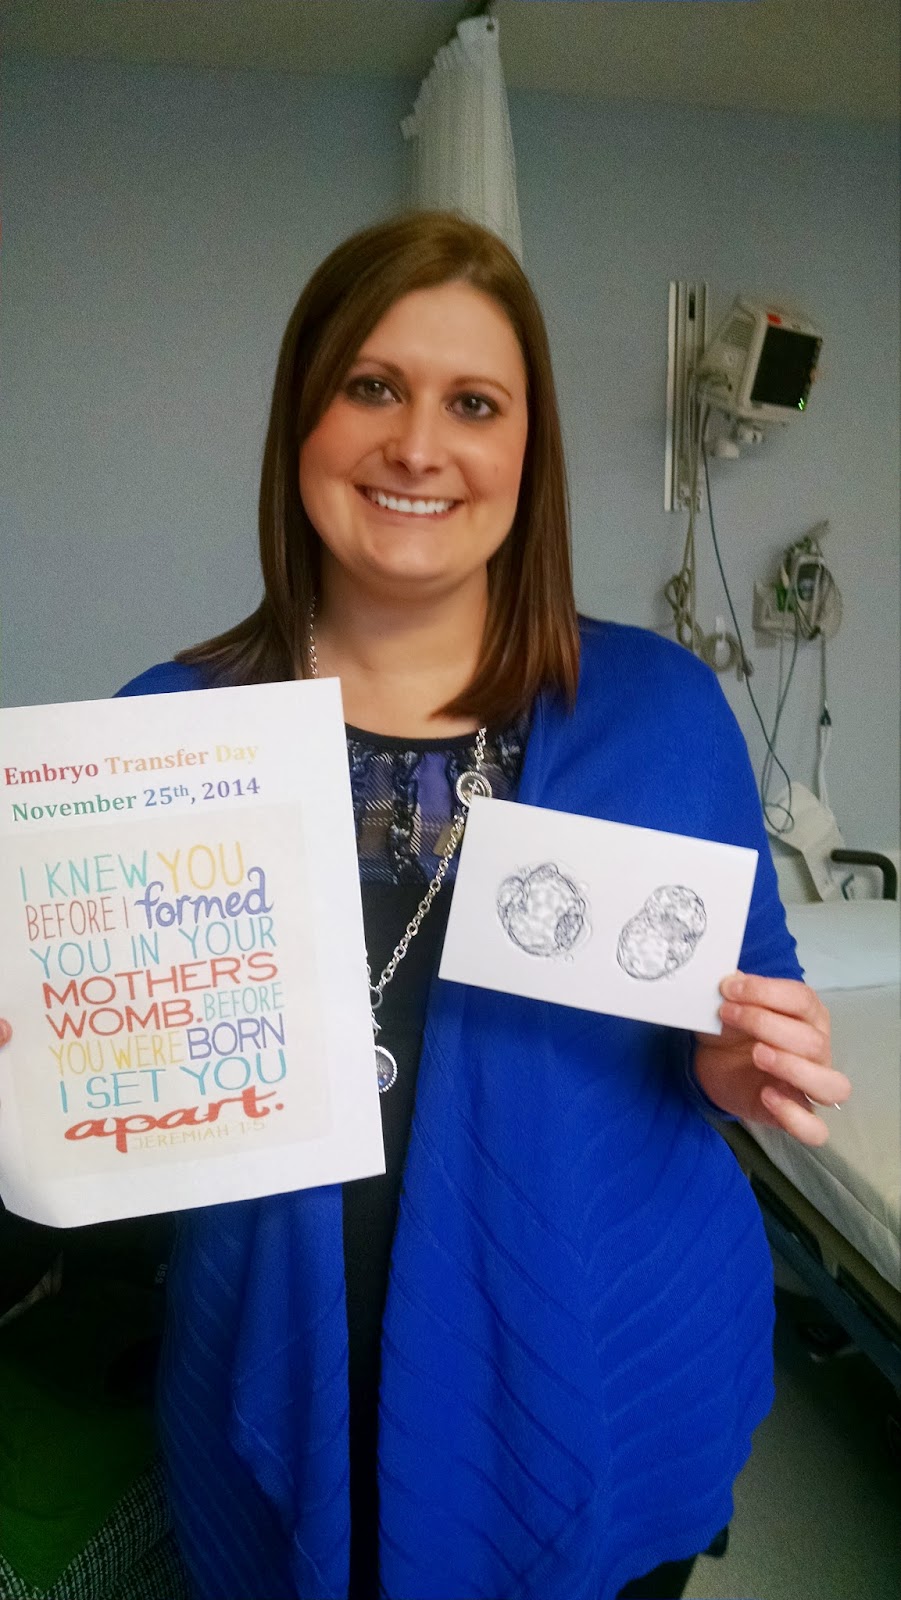 Embryo Transfer Day
November 25th, 2014
I KNEW YOU
BEFORE I formed
YOU IN YOUR
MOTHER'S
WOMB. BEFORE
YOU WERE BORN
I SET YOU
apart.
JEREMIAH 1:5